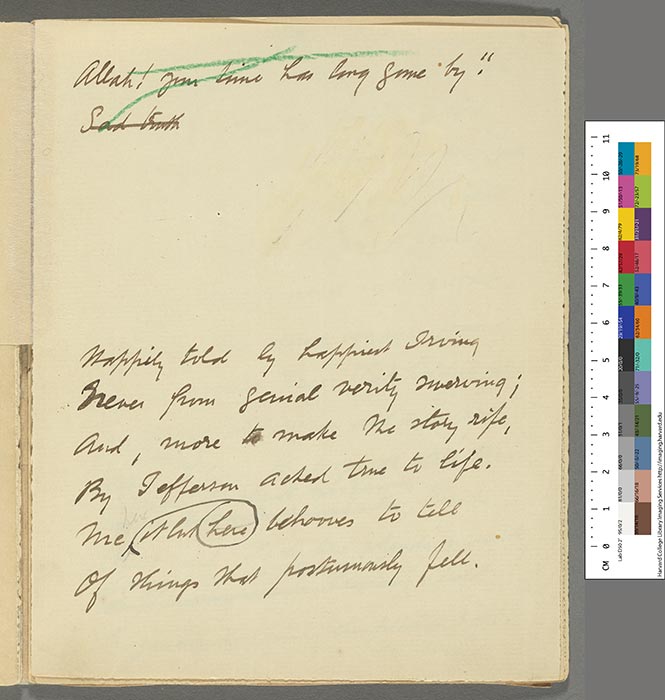 Allah! your time has long gone by."
Sad truth
Happily told by happiest Irving
Never from genial verity swerving;
And, more to make the story rife,
By Jefferson acted true to life.
Me it but here behooves to tell
Of things that postumously fell.
CM 0 1 2 3 4 5 6 7 8 9 10 11
Harvard College Library Imaging Services http://imaging.harvard.edu